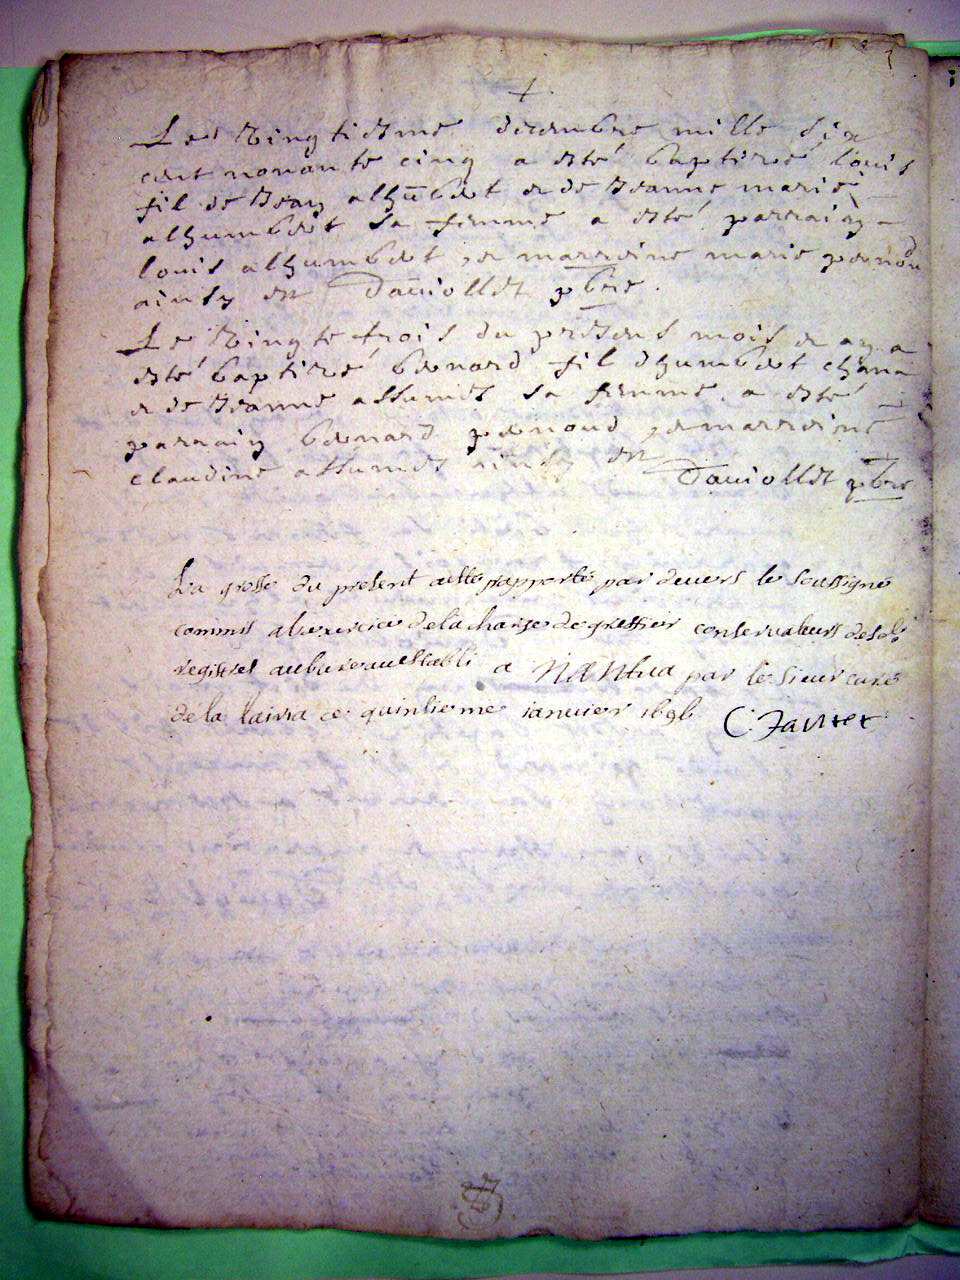 Le vingtiesme decembre mille six
cent nonante cinq a esté baptisé louis
fil de Jean alhūbert et de Jeanne marie
alhumbert sa femme a esté parrain
louis alhumbert, et marreine marie pernoud
ainsy est Dauiollet pbre.
Le vingte trois du presens mois et an a
esté baptisé bernard fil dhumbert chana
et de Jeanne assumet sa femme a esté
parrain bernard pernoud, et marreine
claudine assumet ainsy est Dauiollet pbre
La grosse du present acte rapporté par devers le soussigné
commis alexercice dela charge de greffier conservateurs desdi
registres aubureau establi a Nantua par le sieur curé
de la laivra ce quinbieme ianvier 1696 C. Jantet